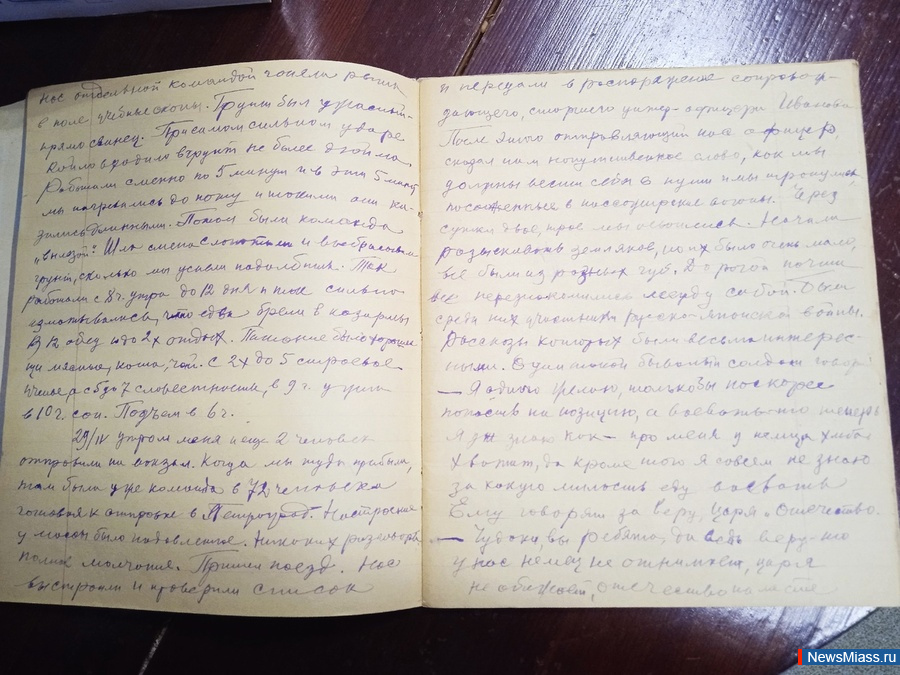 нас отдельной командой гоняли рыть
в поле учебные окопы. Грунт был ужасный-
прямо свинец. При самом сильном ударе
кайло входило в грунт не более дюйма
Работали сменно по 5 минут и в эти 5 минут
мы нагревались до поту и такими они ка-
зались длинными. Потом была команда
„вылазь". Шла смена с лопатами и выбрасывала
грунт, сколько мы успели надолбить. Так
работали с 8 ч. утра до 12 дня и так сильно
изматывались, что едва брели в казармы
В 12 обед и до 2х отдых. Питание было хорошее
щи мясные, каша, чай. С 2х до 5 строевое
учение а с 5 до 7 словестность, в 9 ч. ужин
в 10 ч. сон. Подъем в 6 ч.
29/IV утром меня и еще 2 человек
отправили на вокзал. Когда мы туда прибыли,
там была уже команда в 72 человека
готовая к отправке в Петроград. Настроение
у массы было подавленное. Никаких разговоров
полное молчание. Пришел поезд. Нас
выстроили и проверили список
и передали в распоряжение сопровож-
дающего, старшего унтер-офицера Иванова
После этого отправляющий нас офицер,
сказал нам напутственное слово, как мы
должны вести себя в пути и мы тронулись,
посаженные в пассажирские вагоны. Через
сутки двое, трое мы освоились. Начали
разыскивать земляков, но их было очень мало,
все были из разных губ. Дорогой почти
все перезнакомились между собой. Были
среди них участники Русско-Японской войны.
Рассказы которых были весьма интерес-
ными. Один такой бывалый солдат говорил
— Я одного желаю, только бы поскорее
попасть на позицию, а воевать-то теперь
я уж знаю как - про меня у немца хлеба
хватит, да кроме того я совсем не знаю
за какую милость еду воевать
Ему говорят за веру, царя и отечество.
— Чудаки, вы ребята, да ведь веру-то
у нас немец не отнимает, царя
не обижает, отечество на месте
NewsMiass.ru